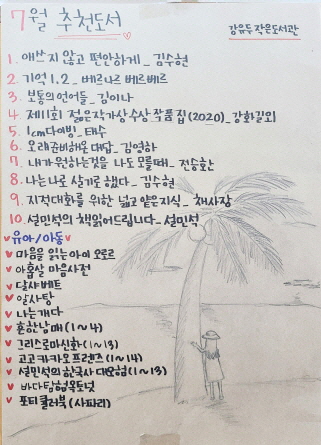 7월 추천도서
강유두작은도서관
1. 애쓰지 않고 편안하게_ 김수현
2. 기억 1.2_ 베르나르 베르베르
3. 보통의 언어들_ 김이나
4. 제11회 젊은작가상 수상 작품집(2020)_ 강화길외
5. 1cm 다이빙_ 태수
6. 오래 준비해온 대답_ 김영하
7. 내가 원하는것을 나도 모를때_ 전승환
8. 나는 나로 살기로 했다_ 김수현
9. 지적대화를 위한 넓고 얕은 지식_ 채사장
10. 설민석의 책읽어드립니다_ 설민석
유아/아동
마음을 읽는 아이 오로르
아홉살 마음사전
달샤베트
알사탕
나는 개다
흔한남매(1~4)
그리스로마신화(1~13)
고고카카오프렌즈(1~14)
설민석의 한국사 대모험(1~13)
바다탐험 옥토넛
포티 컬러북(사파리)